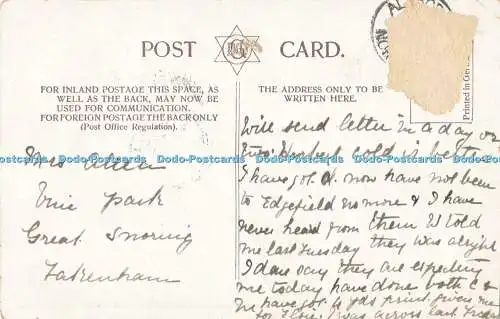 POST CARD.
FOR INLAND POSTAGE THIS SPACE, AS
WELL AS THE BACK, MAY NOW BE
USED FOR COMMUNICATION.
FOR FOREIGN POSTAGE THE BACK ONLY
(Post Office Regulation).
THE ADDRESS ONLY TO BE
WRITTEN HERE.
Printed in
Mrs Allen
Vine Park
Great Snoring
Fakenham
Will send letter in a day or
two Herbert cold is better
I have got it now have not been
to Edgefield no more & I have
never heard from them W told
me last Tuesday they was alright
I dare say they are expecting
me today have done both C &
we have got 4 yds print given me
for was across last
Dodo-Postcards Dodo-Postcards Dodo-Postcards Dodo-Postcards Dodo-Postcards Dodo-Postcards